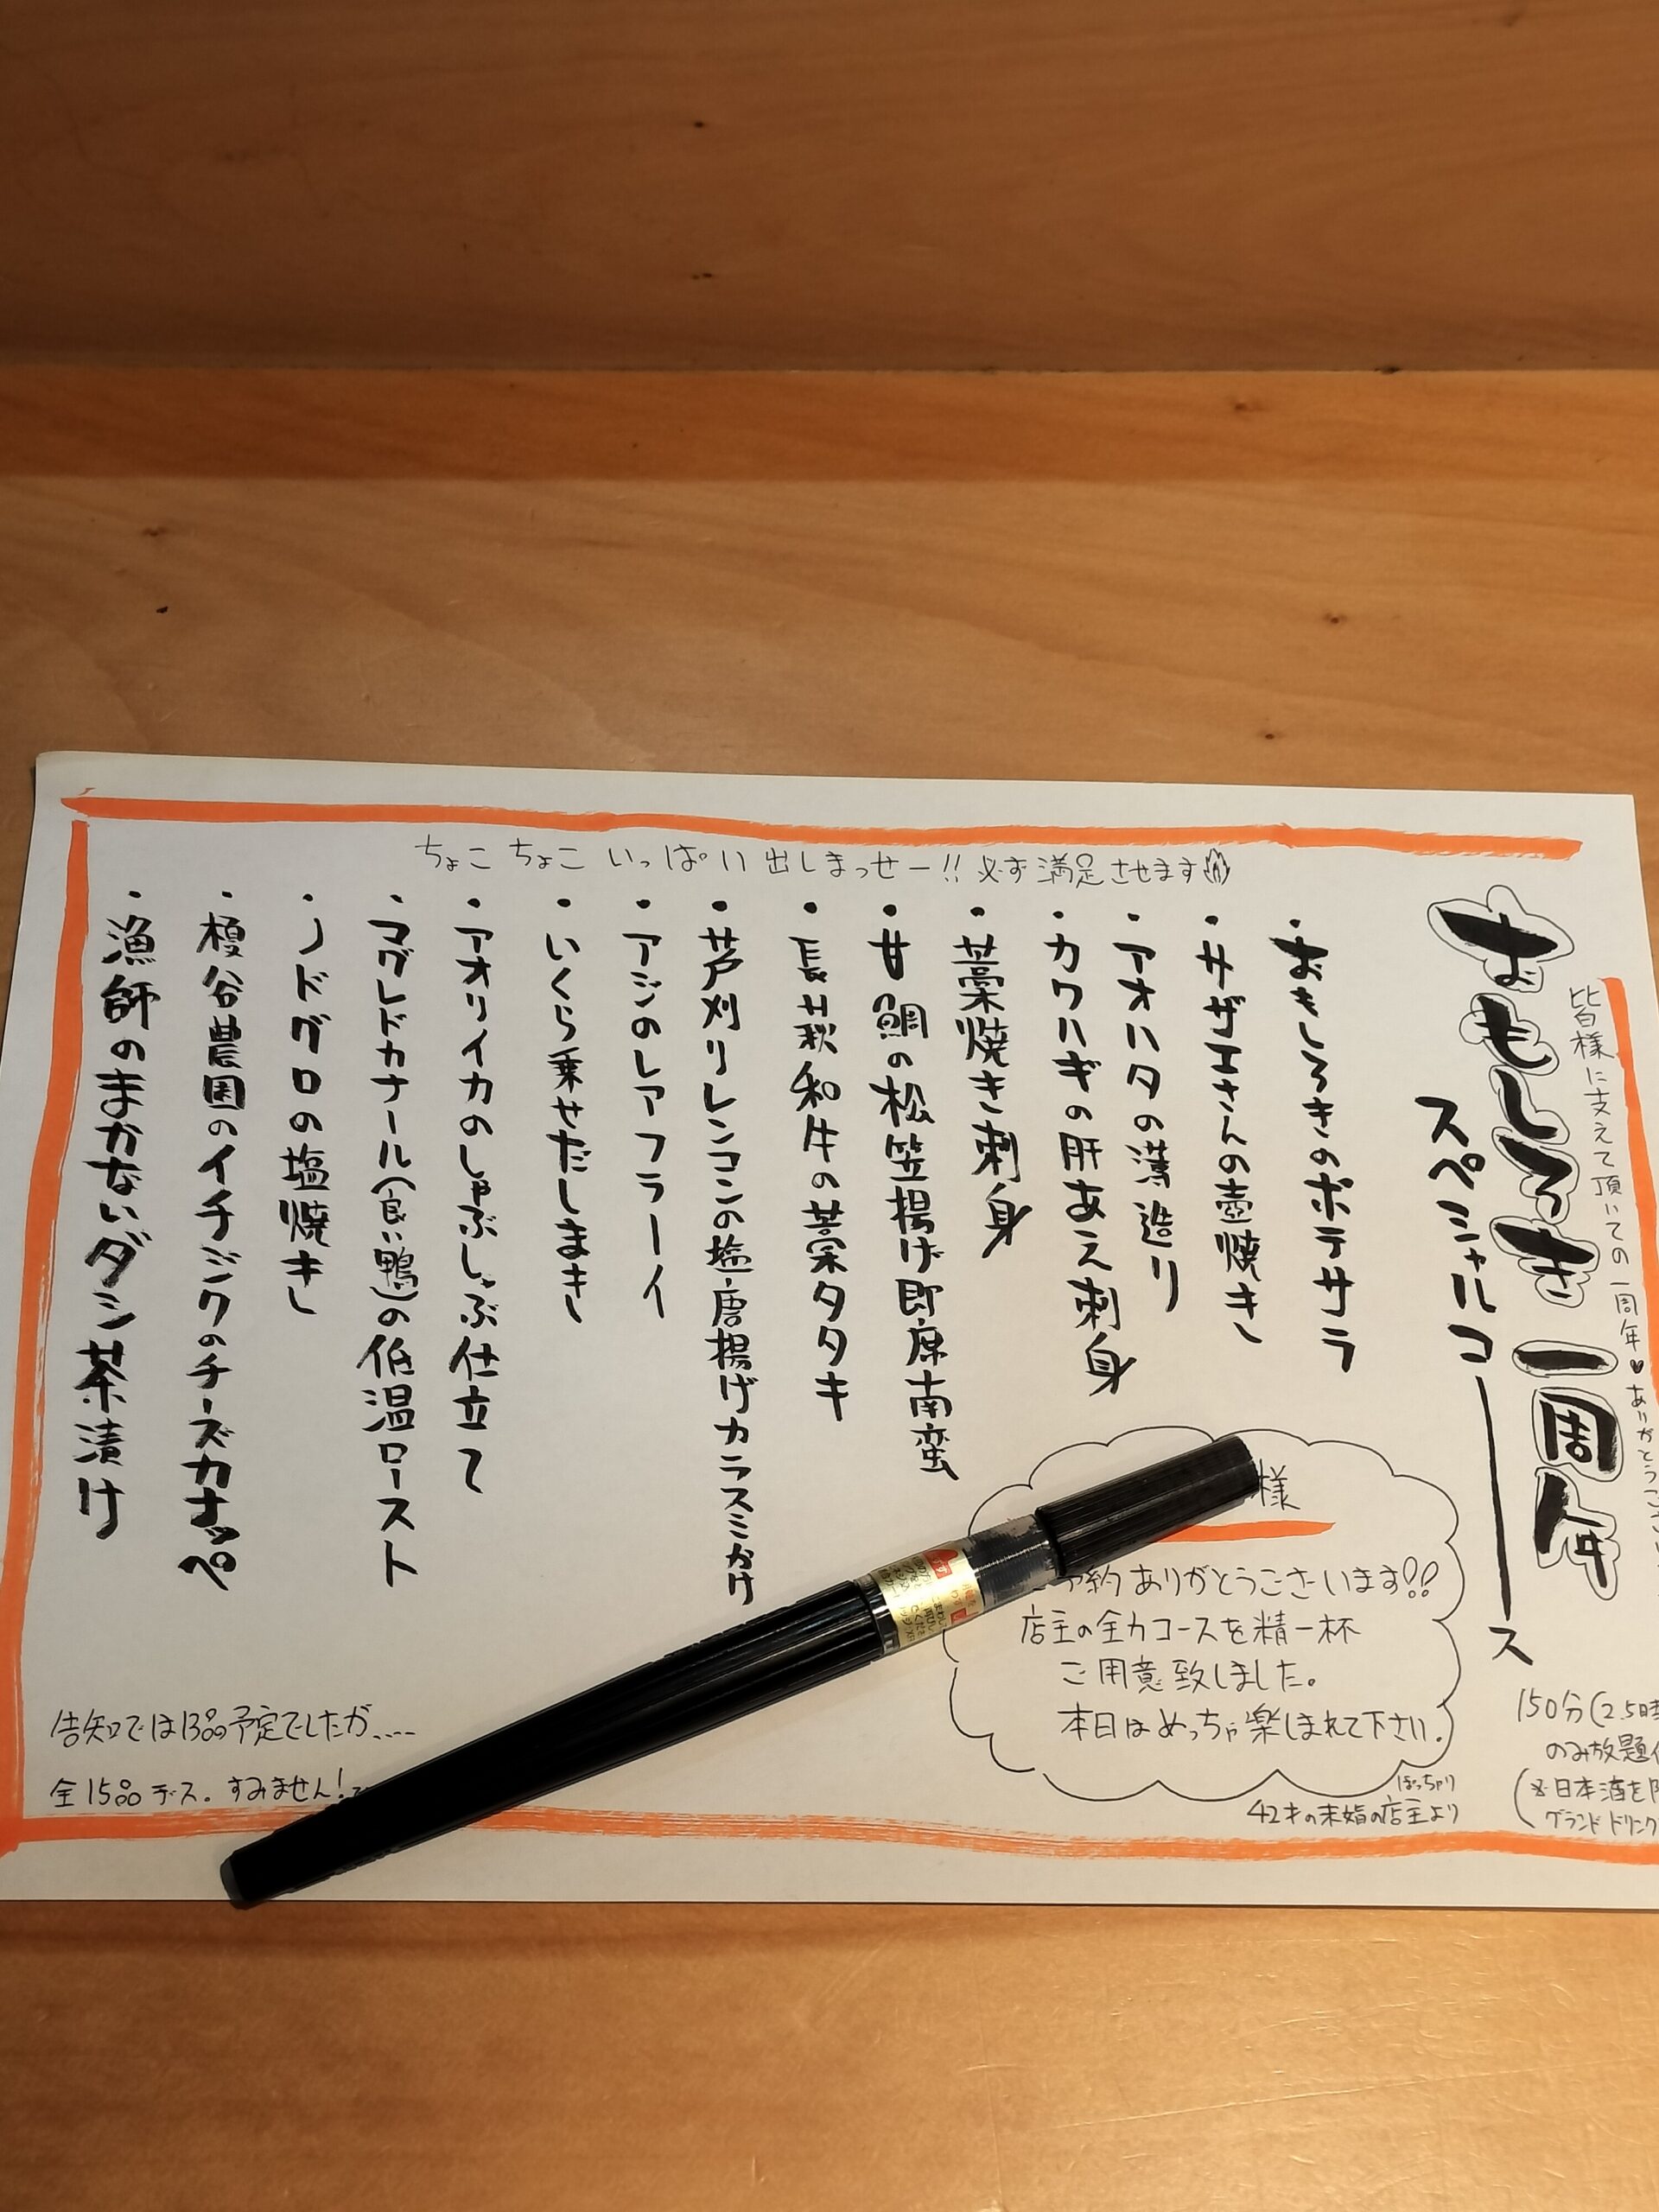 ちょこちょこいっぱい出しまっせー!! 必ず満足させます
皆様に支えて頂いての一周年♥ありがとうござい
おもしろき 一周年
スペシャルコース
・おもしろきのポテサラ
・サザエさんの壺焼き
・アオハタの薄造り
・カワハギの肝あえ刺身
・藁焼き刺身
・甘鯛の松笠揚げ即席南蛮
・長萩和牛の藁タタキ
・芦刈りレンコンの塩唐揚げカラスミがけ
・アジのレアフラーイ
・いくら乗せだしまき
・アオリイカのしゃぶしゃぶ仕立て
・マグレドカナール(良い鴨)の低温ロースト
・ノドグロの塩焼き
・榎谷農園のイチジクのチーズカナッペ
・漁師のまかないダシ茶漬け
様
予約ありがとうございます!!
店主の全力コースを精一杯
ご用意致しました。
本日はめっちゃ楽しまれて下さい。
ぽっちゃり
42才の未婚の店主より
150分(2.5時
のみ放題
(※日本酒を
グランドドリンク
告知では13品予定でしたが....
全15品デス。すみません!